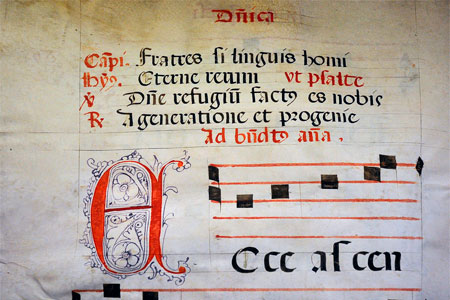 Dñica
Capi. Fratres si linguis homi
Hyꝰ. Eterne rerum ut psalte
℣ Dñe refugiũ factꝰ es nobis
℟ A generatione et progenie
Ad bñdtꝰ aña.
Ecce ascen